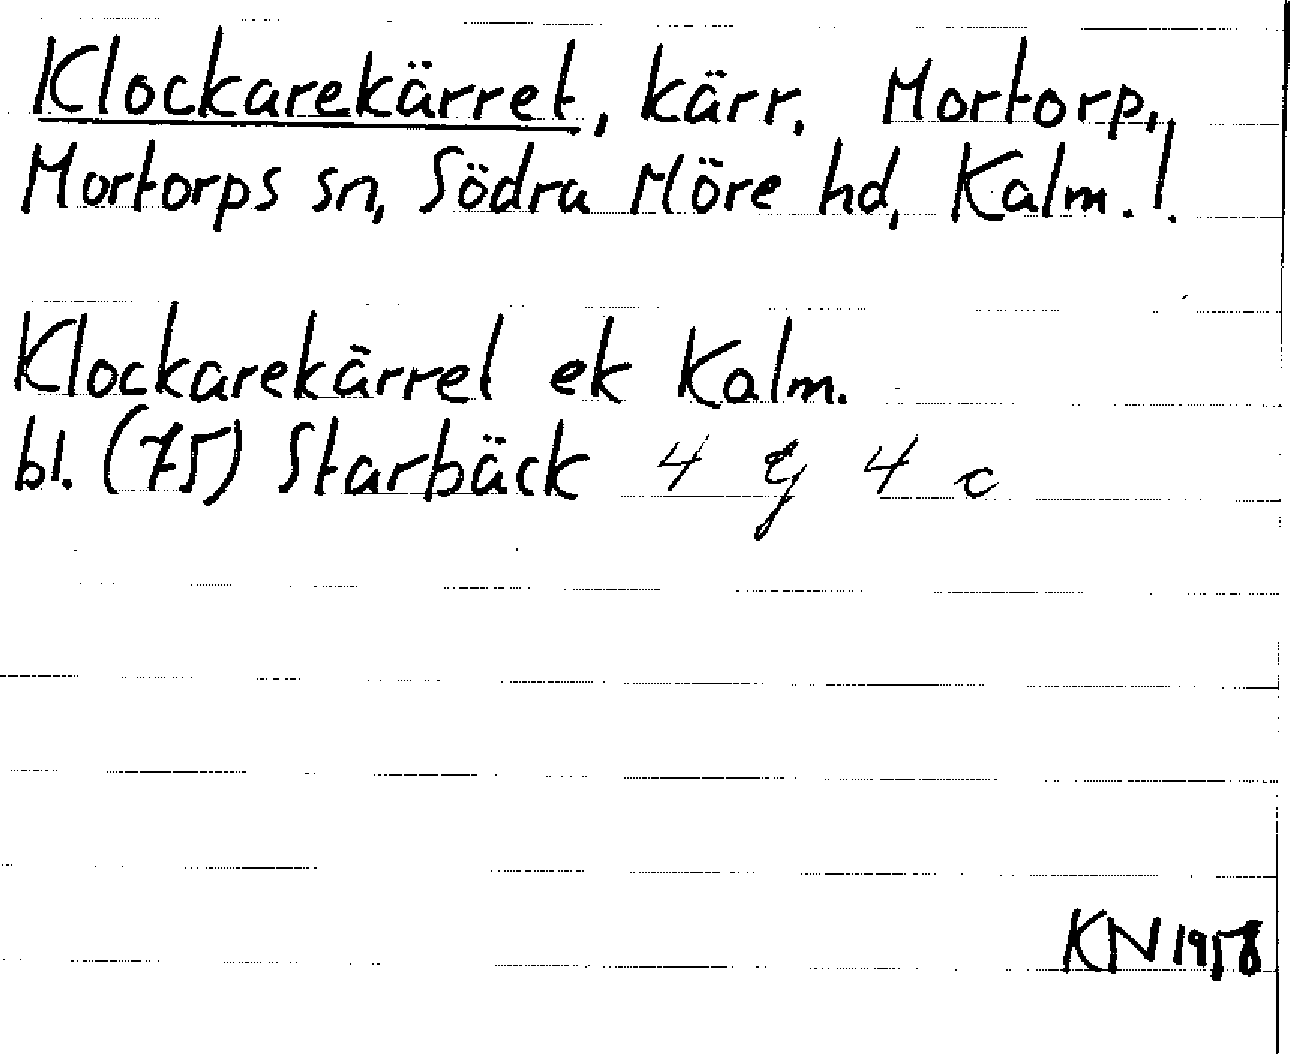 Klockarekärret, kärr. Mortorp,
Mortorps sn, Södra Möre hd, Kalm. l.
Klockarekärret ek Kalm.
bl. (75) Starbäck 4 g 4 c
KN 1958